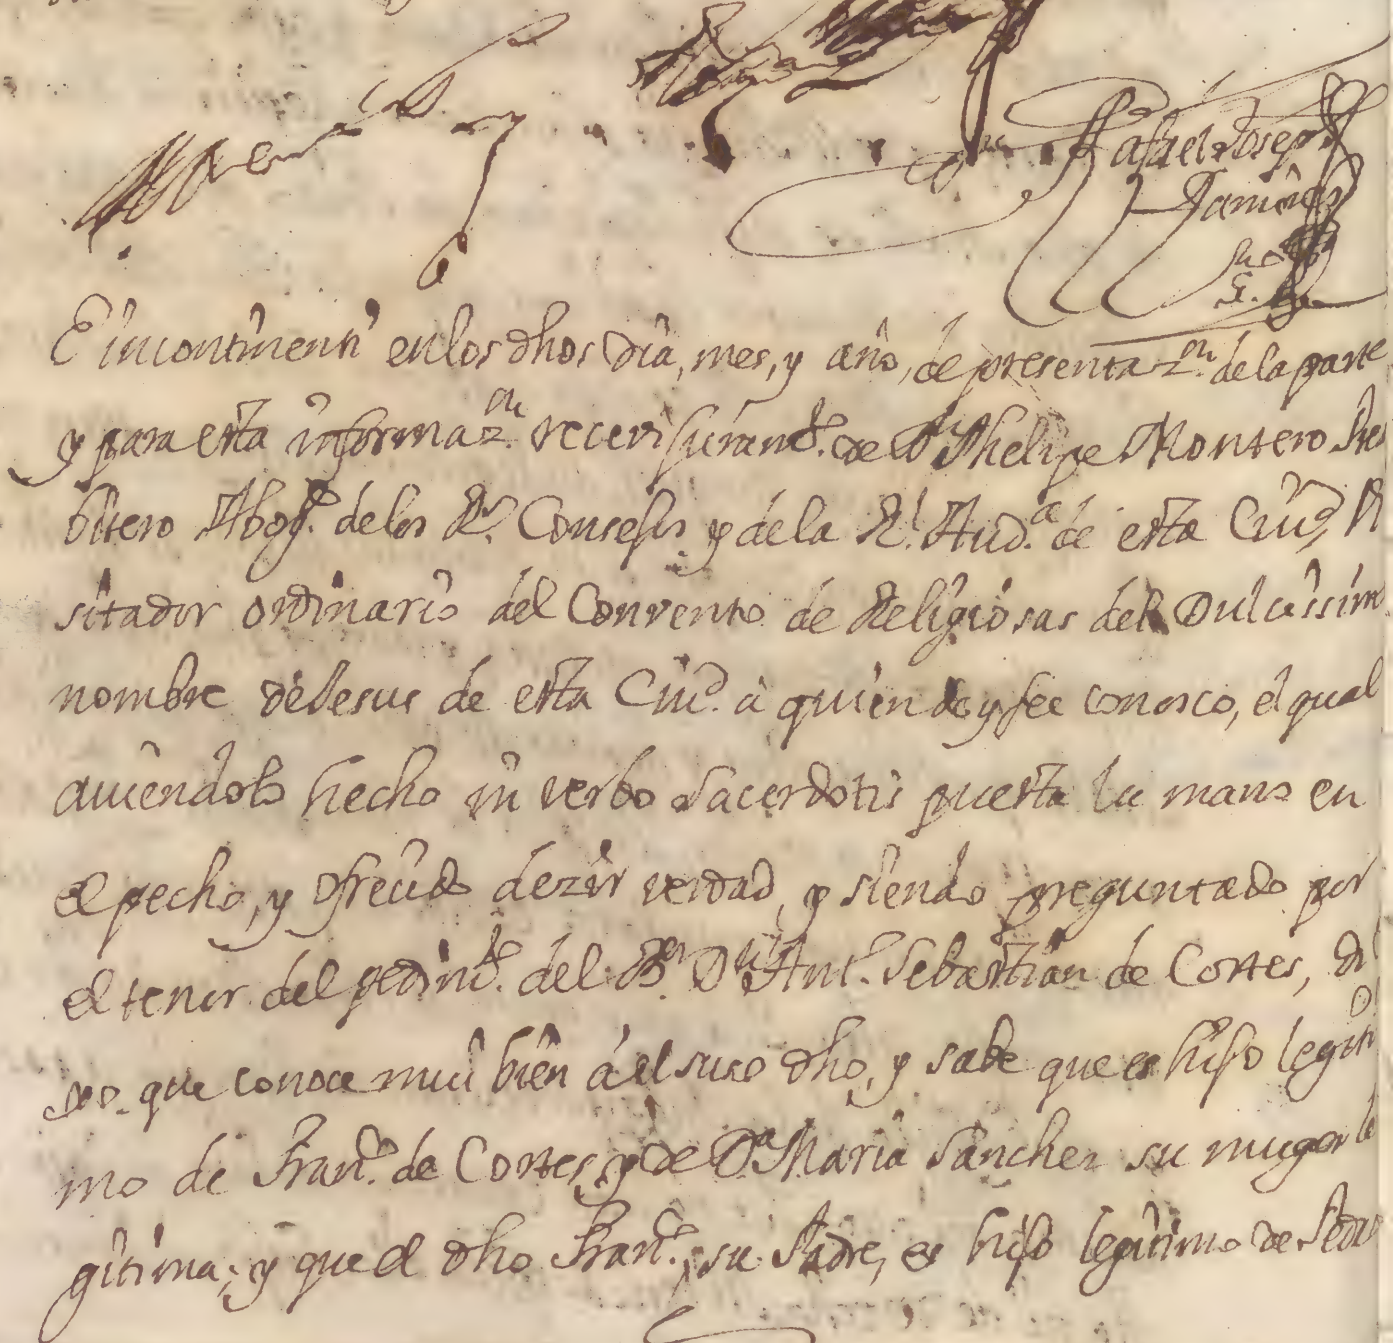 Rafael Joseph
E incontinenti en los dhos dia, mes, y año, de presentazon. de la parte
y para esta informazon. recevi juramto. de Dn Phelipe Montero Pres
bitero Abogdo. de los Rs. Consejos y de la Rl. Auda. de esta Ciud, Vi
sitador ordinario del Convento de Religiosas del Dulcissimo
nombre de Jesus de esta Ciud. a quien doy fee conosco, el qual
aviendolo hecho in verbo sacerdotis puesta la mano en
el pecho, y ofrecido dezir verdad, y siendo preguntado por
el tenor del pedimto. del Br. Dn Anto. Sebastian de Cortes, di
xo. que conoce mui bien á el suso dho, y sabe que es hijo legiti
mo de Franco. de Cortes, y de Da Maria Sanchez su muger le
gitima; y que el dho Franco., su Padre, es hijo legitimo de Pedro